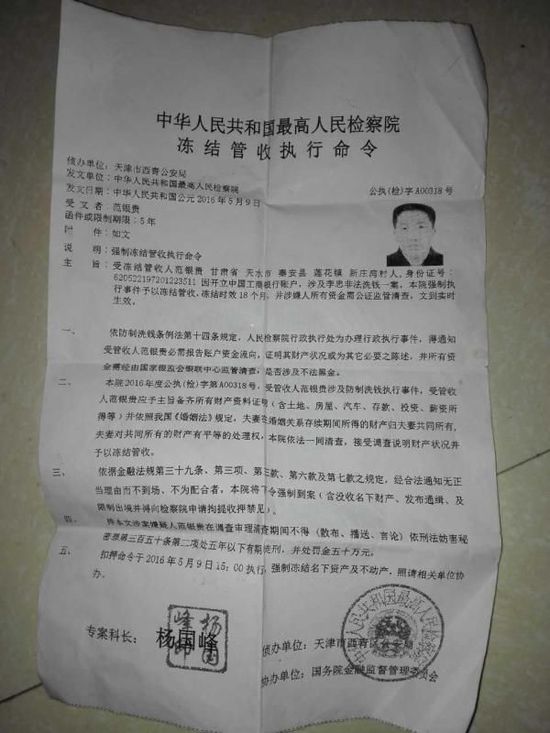 中华人民共和国最高人民检察院
冻结管收执行命令
侦办单位：天津市西青公安局
发文单位：中华人民共和国最高人民检察院
发文日期：中华人民共和国公元2016年5月9日
公执(检)字A00318号
受文者：范银贵
函件或限制期限：5年
附件：如文
说明：强制冻结管收执行命令
主旨：受冻结管收人范银贵 甘肃省 天水市 秦安县 莲花镇 新庄湾村人,身份证号：
620522197201223511 因开立中国工商银行账户，涉及李忠非法洗钱一案，本院强制执
行事件予以冻结管收，冻结时效18个月，并涉嫌人所有资金需公证监管清查，文到实时
生效。
一、 依防制洗钱条例法第十四条规定，人民检察院行政执行处为办理行政执行事件，得通知
受管收人范银贵必需报告账户资金流向，证明其财产状况或为其它必要之陈述，并所有资
金需经由国家银监会银联中心监管清查，是否涉及不法黑金。
二、 本院2016年度公执(检)字第A00318号，受管收人范银贵涉及防制洗钱执行事件，受管收
人范银贵应于主旨备齐所有财产资料证明（含土地、房屋、汽车、存款、投资、薪资所
得等）并依照我国《婚姻法》规定，夫妻在婚姻关系存续期间所得的财产归夫妻共同所有，
夫妻对共同所有的财产有平等的处理权，本院依法一同清查，接受调查说明财产状况并
予以冻结管收。
三、 依据金融法规第三十九条、第三项、第五款、第六款及第七款之规定，经合法通知无正
当理由而不到场、不为配合者，本院将下令强制到案（含没收名下财产、发布通缉、及
限制出境并得向检察院申请拘提收押禁见）。
四、 持本文涉案嫌疑人范银贵在调查审理清查期间不得（散布、播送、言论）依刑法妨害秘
密罪第三百五十条第二项处五年以下有期徒刑，并处罚金五十万元。
五、 扣押命令于2016年5月9日15:00执行，强制冻结名下资产及不动产。照请相关单位协
办。
专案科长：杨国峰
杨国峰印
侦办单位：天津市西青区公安局
协办单位：国务院金融监督管理委员会
中华人民共和国最高人民检察院